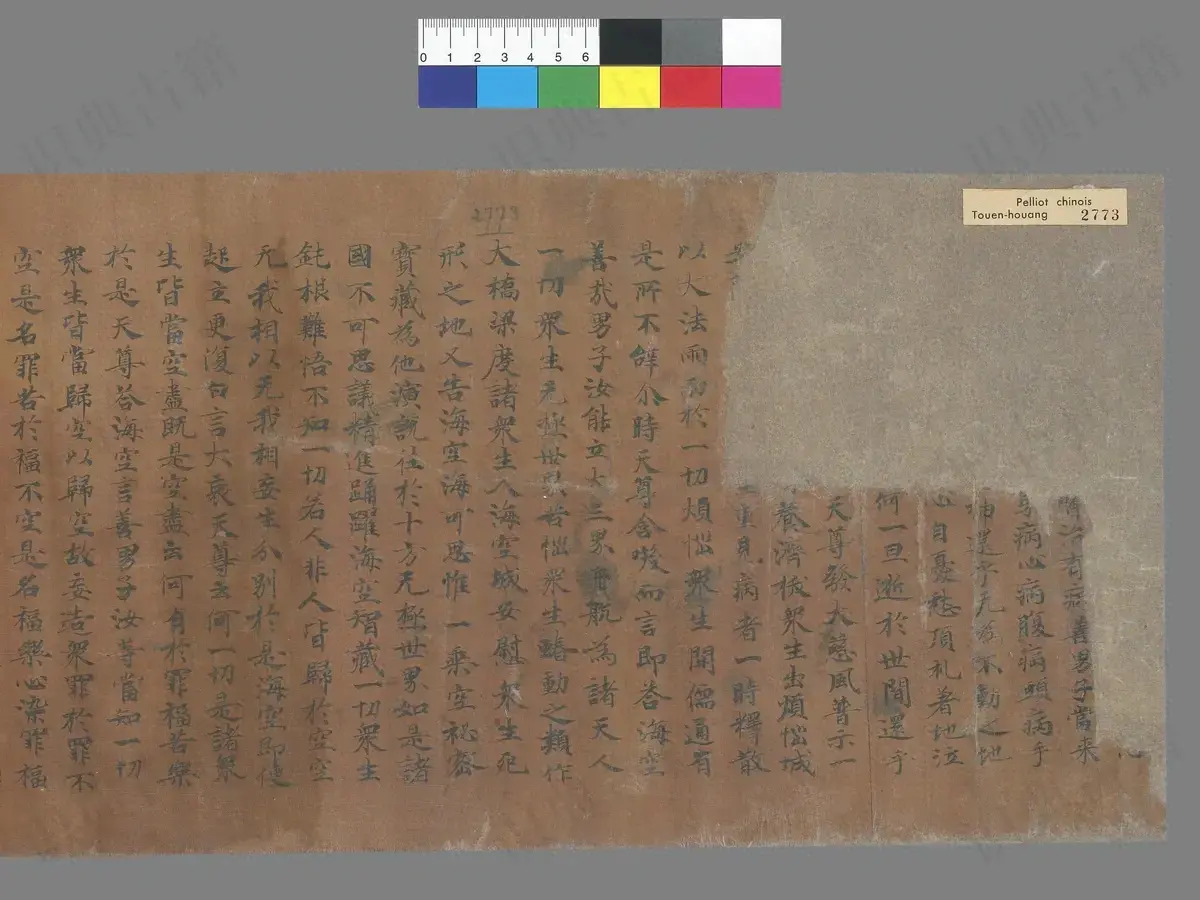 0 1 2 3 4 5 6
Pelliot chinois
Touen-houang 2773
2773
礼
治有病善男子當来
病心病腹病頭病手
還乎无为不動之地
自憂愁頂礼着地泣
何一旦逝於世間還乎
天尊發大慈風普示一
養濟拔眾生出煩惱城
重見病者一時釋散
以大法雨雨於一切煩惱眾生開儒通有
是所不辞尒時天尊含噯而言即荅海空
善哉男子汝能立大三界舟航為諸天人
一切眾生无極世界苦惱眾生蠢動之類作
大橋梁度諸眾生入海空城安慰眾生死
形之地又告海空海可思惟一乘空祕密
寳藏為他演說往於十方无極世界如是諸
國不可思議精進踊躍海空智藏一切眾生
鈍根難悟不知一切若人非人皆歸於空空
无我相以无我相妄生分别於是海空即便
起立更復白言大哀天尊云何一切是諸眾
生皆當空盡既是空盡云何有於罪福苦樂
於是天尊荅海空言善男子汝等當知一切
眾生皆當歸空以歸空故妄造眾罪於罪不
空是名罪若於福不空是名福樂心染罪福
識典古籍